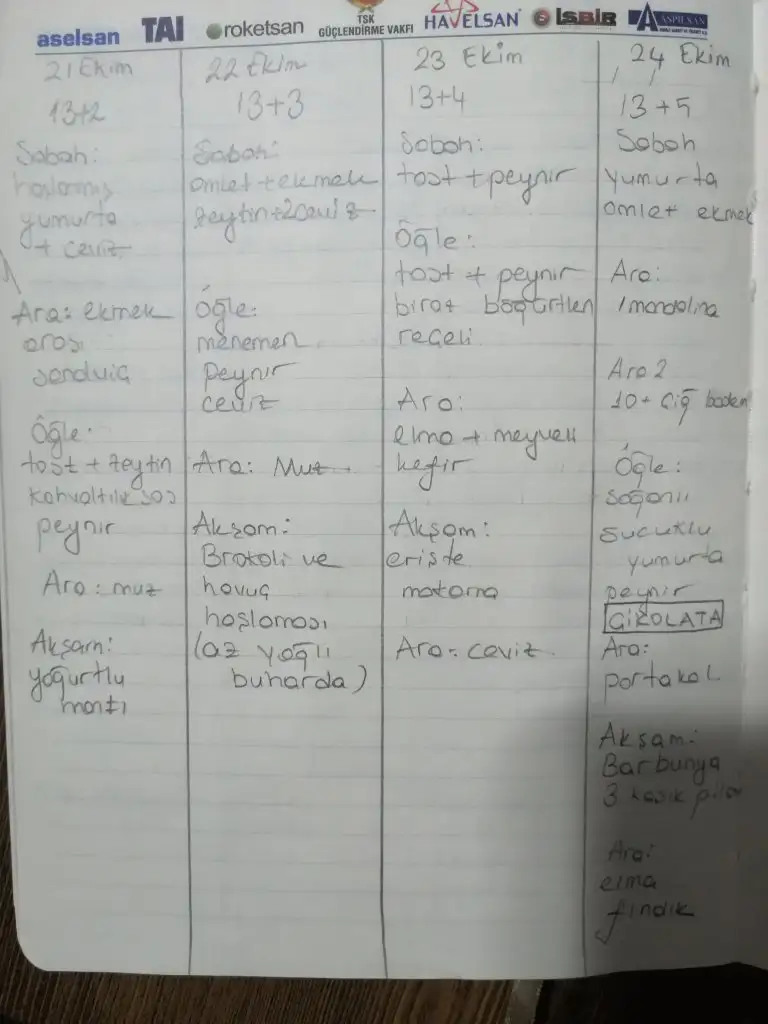 aselsan TAI roketsan TSK GÜÇLENDİRME VAKFI HAVELSAN İŞBİR ASPİLSAN
21 Ekim
13+2
Sabah:
haşlanmış
yumurta
+ ceviz
Ara: ekmek
arası
sandviç
Öğle:
tost + zeytin
kahvaltılık sos
peynir
Ara: muz
Akşam:
yoğurtlu
mantı
22 Ekim
13+3
Sabah:
omlet + ekmek
zeytin+2ceviz
Öğle:
menemen
peynir
ceviz
Ara: Muz
Akşam:
Brokoli ve
havuç
haşlaması
(az yağlı
buharda)
23 Ekim
13+4
Sabah:
tost + peynir
Öğle:
tost + peynir
biraz böğürtlen
reçeli
Ara:
elma + meyveli
kefir
Akşam:
erişte
makarna
Ara: ceviz
24 Ekim
13+5
Sabah
yumurta
omlet ekmek
Ara:
1 mandalina
Ara 2
10+ çiğ badem
Öğle:
soğanlı
sucuklu
yumurta
peynir
ÇİKOLATA
Ara:
portakal
Akşam:
Barbunya
3 kaşık pilav
Ara:
elma
fındık